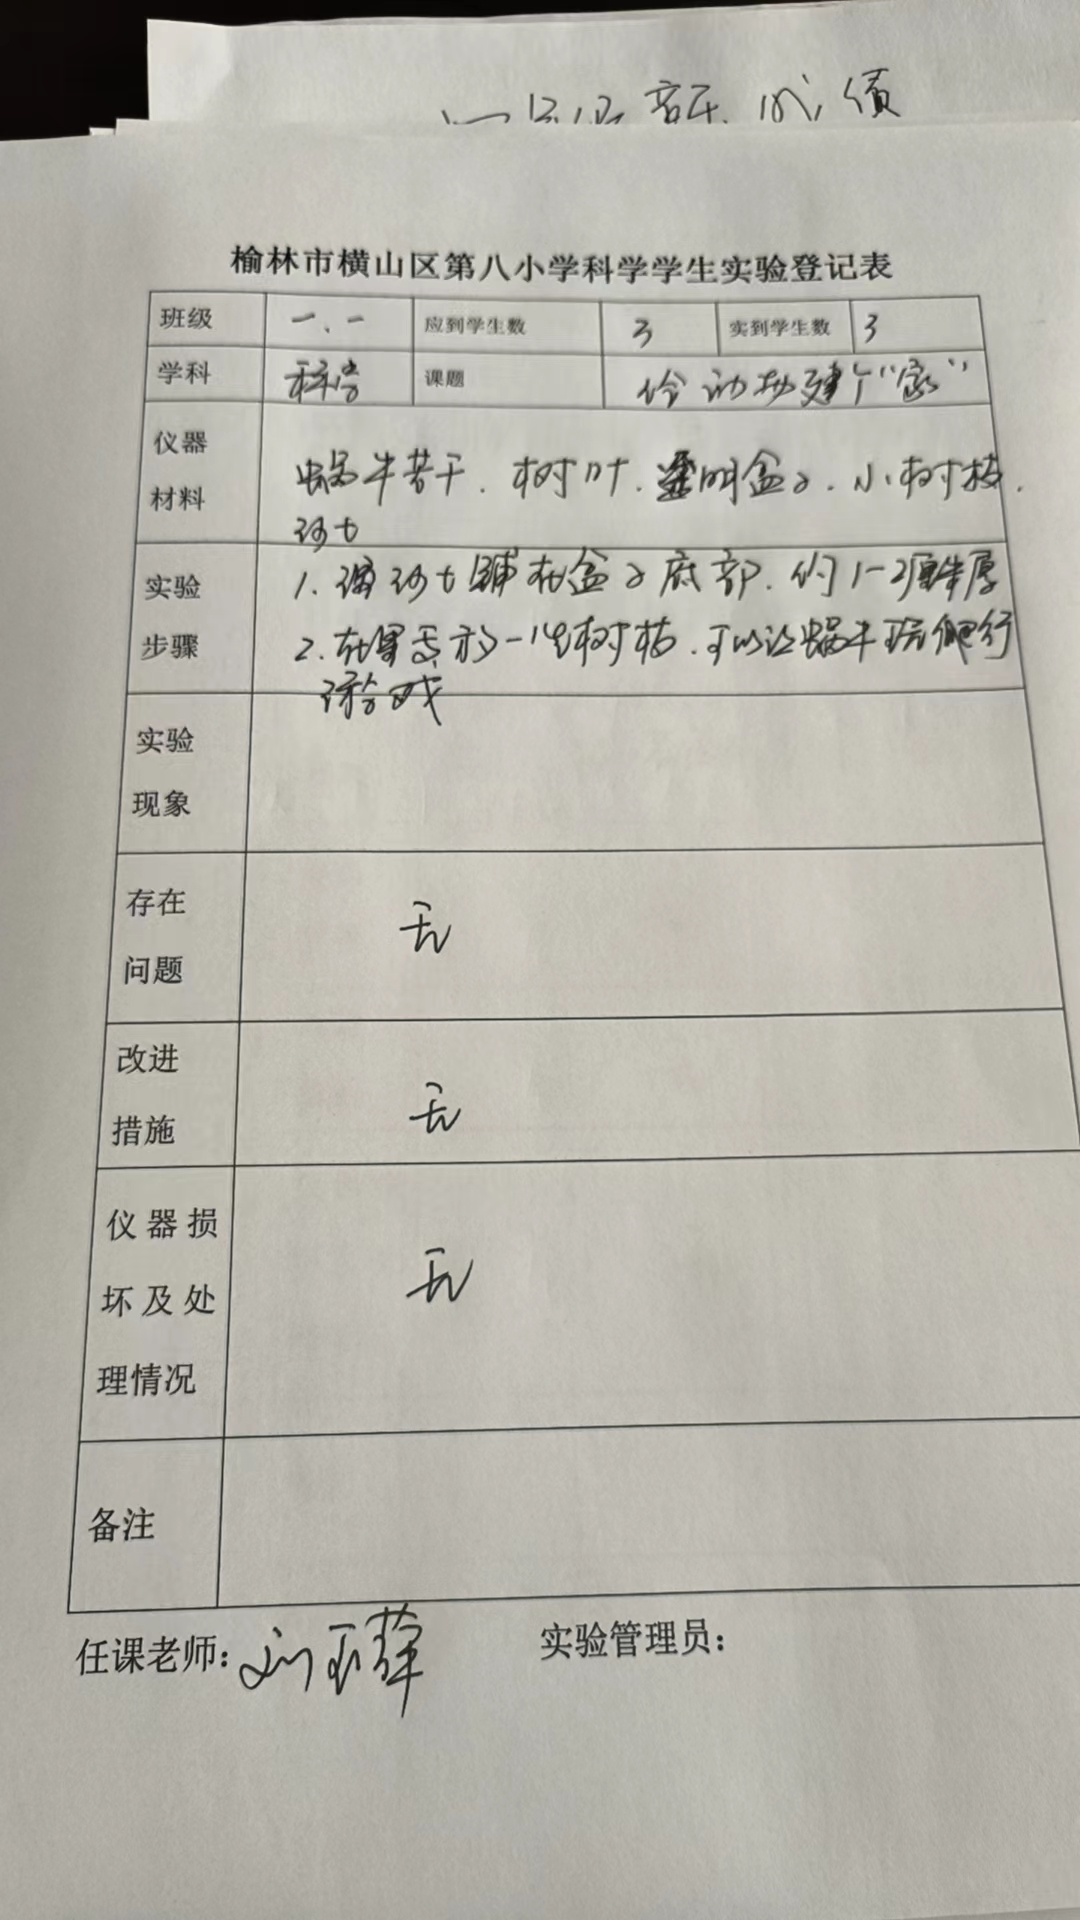 成绩
榆林市横山区第八小学科学学生实验登记表
班级 一.一 应到学生数 3 实到学生数 3
学科 科学 课题 给动物建个“家”
仪器
材料
蜗牛若干.树叶.透明盒子.小树枝.
沙土
实验
步骤
1.将沙土铺在盒子底部.约1-2厘米厚
2.在里面放一些树枝.可以让蜗牛玩爬行
游戏
实验
现象
存在
问题
无
改进
措施
无
仪器损
坏及处
理情况
无
备注
任课老师:刘玉萍 实验管理员: